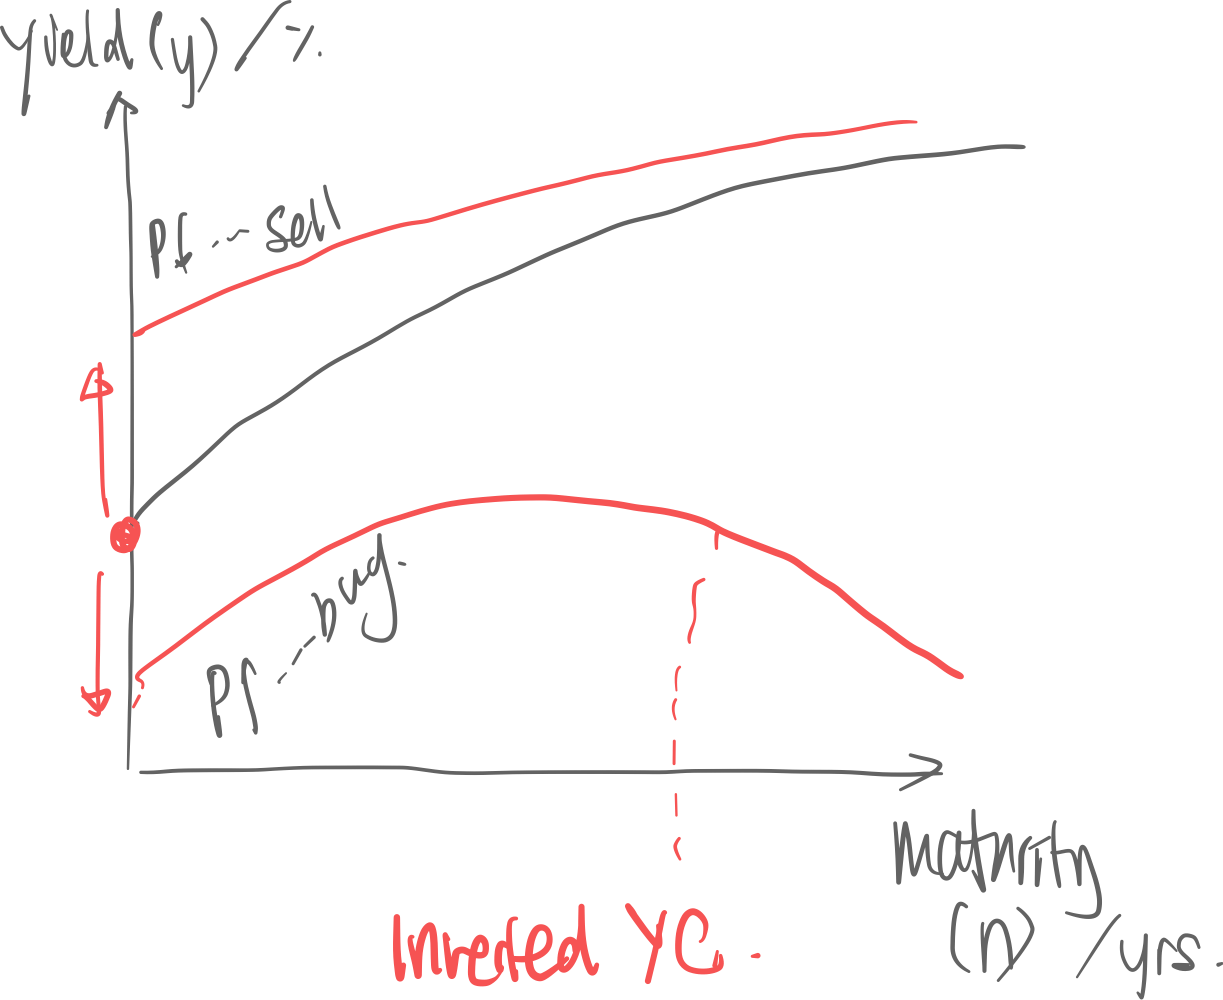 yield (y) / %.
Pf -- sell
Pf --- buy.
maturity
(n) / yrs.
Inverted YC.